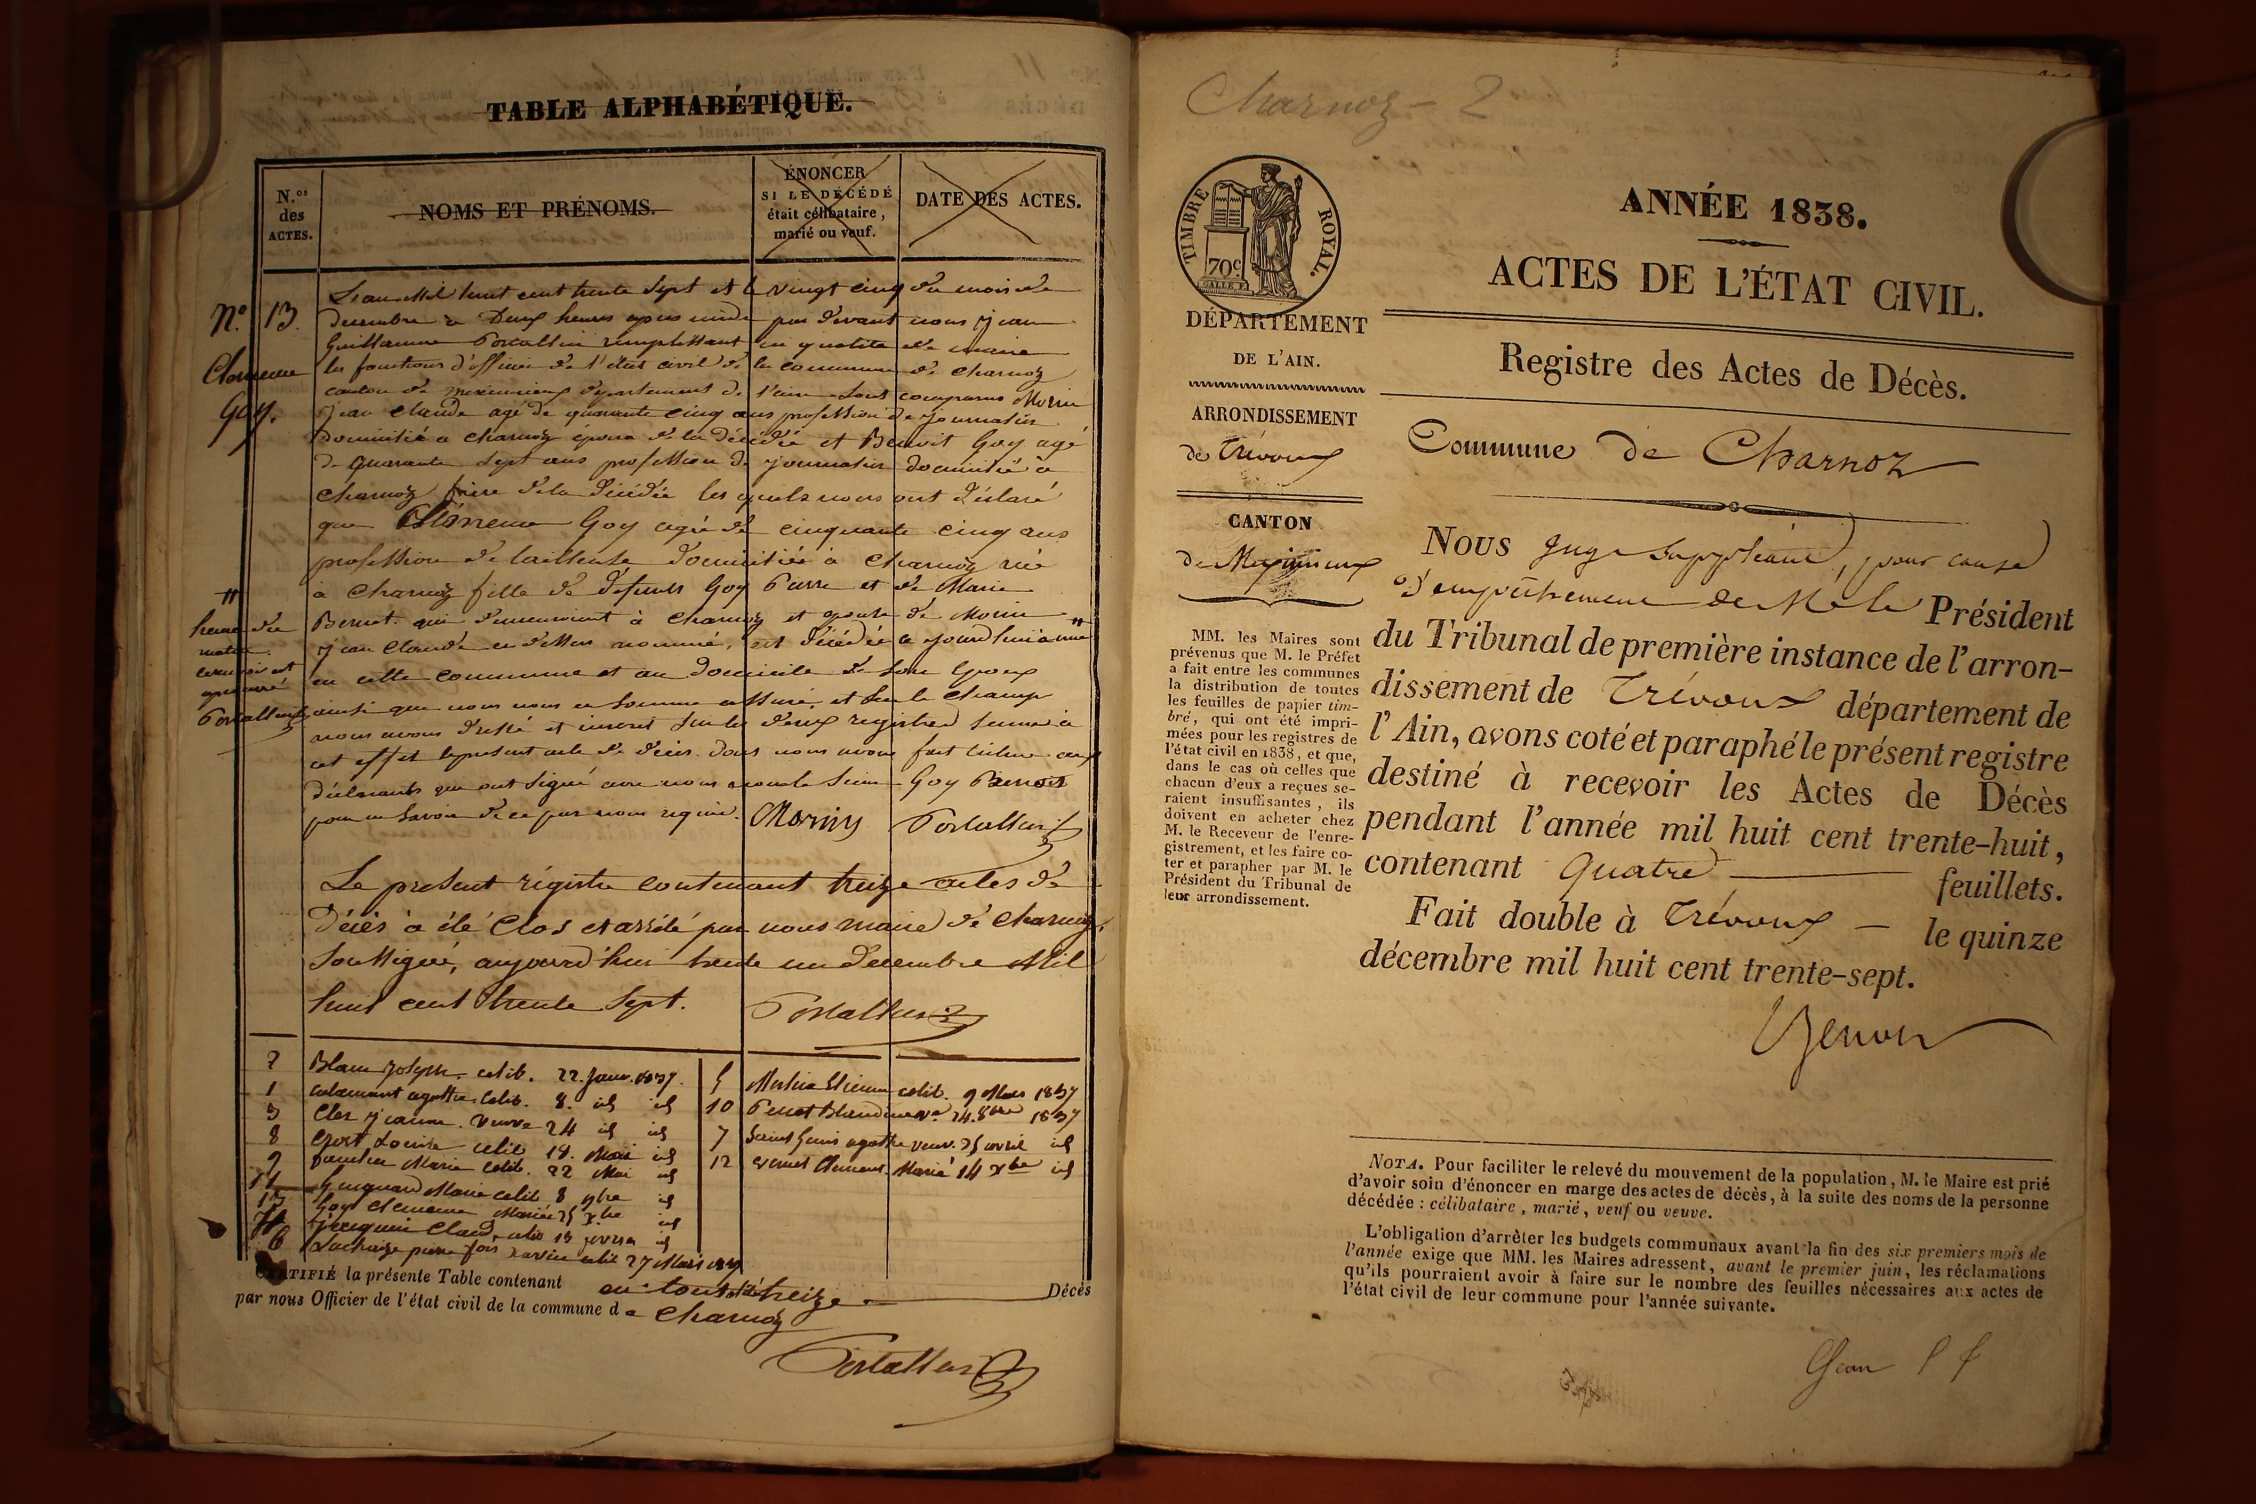 TABLE ALPHABÉTIQUE.
N.os des ACTES.
NOMS ET PRÉNOMS.
ÉNONCER
SI LE DÉCÉDÉ
était célibataire,
marié ou veuf.
DATE DES ACTES.
N.° 13.
Clemence
Goy.
L'an mil huit cent trente sept et le vingt cinq du mois de
decembre a Deux heures apres midi par devant nous jean
Guillaume Portallier remplissant en qualité de maire
les fonctions d'officier de l'état civil de la commune de charnoz
canton de meximieux departement de l'ain sont comparus Morin
jean claude agé de quarante cinq ans profession de journalier
domicilié a charnoz époux de la décédée et Benoit Goy agé
de quarante sept ans profession de journalier domicilié à
charnoz frère de la décédée les quels nous ont déclaré
que Clémence Goy agée de cinquante cinq ans
profession de tailleuse domiciliée à charnoz née
à charnoz fille de défunts Goy Pierre et de Marie
Bernet qui demeuroient à charnoz et epouse de Morin
jean claude ci dessus nommé, est décédée a jourd'hui à une "
" heure du
matin
en cette commune et au domicile de son epoux
ainsi que nous nous en sommes assuré, et sur le champ
nous avons dressé et inscrit sur les deux registres tenus à
cet effet le present acte de décès dont nous avons fait lecture aux
déclarants qui ont signé avec nous non le sieur Goy Benoit
pour ne savoir de ce par nous requis. Morin Portallier
renvoi est
approuvé
Portallier
Le present régistre contenant treize actes de
Décès à été Clos et arrêté par nous maire de Charnoz
soussigné, aujourd'hui trente un décembre Mil
huit cent trente sept. Portallier
2 Blanc joseph celib. 22 janv. 1837.
1 calamant agathe celib. 8. id id
3 Cler jeanne veuve 24 id id
8 Louise celib 18. Mai id
9 Marie celib. 22 Mai id
11 Guignard Marie celib 8 9bre id
13 Goy Clemence Mariée 25 Xbre id
4 jacquin Claud. celib 13 id
6 Lachaize pierre celib 27 Mars 1837
5 Etienne celib. 9 Mars 1837
10 Perret Blandine ve 24 8bre 1837
7 Saint Genis agathe veuv. 25 avril id
12 vernet Clement Marié 14 Xbre id
CERTIFIÉ la présente Table contenant en tout treize Décès
par nous Officier de l'état civil de la commune de Charnoz
Portallier
Charnoz - 2
TIMBRE ROYAL.
70c
DÉPARTEMENT
DE L'AIN.
ARRONDISSEMENT
de Trévoux
CANTON
de Meximieux
MM. les Maires sont
prévenus que M. le Préfet
a fait entre les communes
la distribution de toutes
les feuilles de papier tim-
bré, qui ont été impri-
mées pour les registres de
l'état civil en 1838, et que,
dans le cas où celles que
chacun d'eux a reçues se-
raient insuffisantes, ils
doivent en acheter chez
M. le Receveur de l'enre-
gistrement, et les faire co-
ter et parapher par M. le
Président du Tribunal de
leur arrondissement.
ANNÉE 1838.
ACTES DE L'ÉTAT CIVIL.
Registre des Actes de Décès.
Commune de Charnoz
NOUS juge suppléant, pour cause
d'empêchement de M. le Président
du Tribunal de première instance de l'arron-
dissement de Trévoux département de
l'Ain, avons coté et paraphé le présent registre
destiné à recevoir les Actes de Décès
pendant l'année mil huit cent trente-huit,
contenant quatre feuillets.
Fait double à Trévoux le quinze
décembre mil huit cent trente-sept.
NOTA. Pour faciliter le relevé du mouvement de la population, M. le Maire est prié
d'avoir soin d'énoncer en marge des actes de décès, à la suite des noms de la personne
décédée : célibataire, marié, veuf ou veuve.
L'obligation d'arrêter les budgets communaux avant la fin des six premiers mois de
l'année exige que MM. les Maires adressent, avant le premier juin, les réclamations
qu'ils pourraient avoir à faire sur le nombre des feuilles nécessaires aux actes de
l'état civil de leur commune pour l'année suivante.